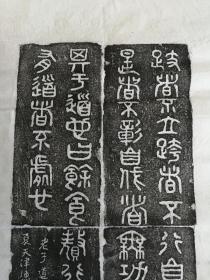 跂者不立跨者不行自
是者不彰自伐者無功
其于道也曰餘食贅
有道者不處也
老子道
夏天津